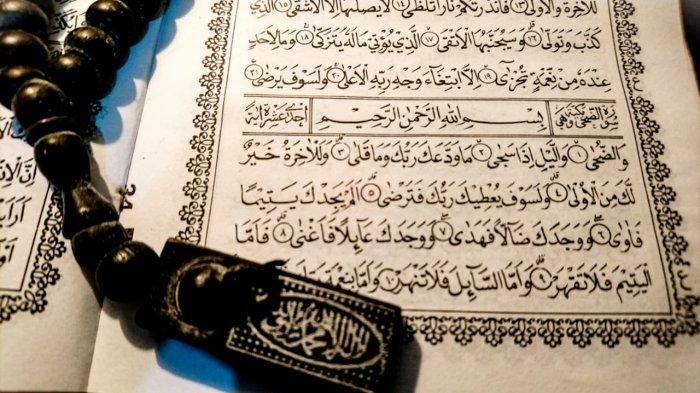 لَلْاٰخِرَةَ وَالْاُوْلٰى ۝١٣ فَاَنْذَرْتُكُمْ نَارًا تَلَظّٰى ۝١٤ لَا يَصْلٰىهَا اِلَّا الْاَشْقَى ۝١٥ الَّذِيْ
كَذَّبَ وَتَوَلّٰى ۝١٦ وَسَيُجَنَّبُهَا الْاَتْقَى ۝١٧ الَّذِيْ يُؤْتِيْ مَالَهٗ يَتَزَكّٰى ۝١٨ وَمَا لِاَحَدٍ
عِنْدَهٗ مِنْ نِّعْمَةٍ تُجْزٰٓى ۝١٩ اِلَّا ابْتِغَاۤءَ وَجْهِ رَبِّهِ الْاَعْلٰى ۝٢٠ وَلَسَوْفَ يَرْضٰى ۝٢١
سورة الضحى مكية وهي بِسْمِ اللهِ الرَّحْمٰنِ الرَّحِيْمِ احدى عشرة اية
وَالضُّحٰى ۝١ وَالَّيْلِ اِذَا سَجٰى ۝٢ مَا وَدَّعَكَ رَبُّكَ وَمَا قَلٰى ۝٣ وَلَلْاٰخِرَةُ خَيْرٌ
لَّكَ مِنَ الْاُوْلٰى ۝٤ وَلَسَوْفَ يُعْطِيْكَ رَبُّكَ فَتَرْضٰى ۝٥ اَلَمْ يَجِدْكَ يَتِيْمًا
فَاٰوٰى ۝٦ وَوَجَدَكَ ضَاۤلًّا فَهَدٰى ۝٧ وَوَجَدَكَ عَاۤئِلًا فَاَغْنٰى ۝٨ فَاَمَّا
الْيَتِيْمَ فَلَا تَقْهَرْ ۝٩ وَاَمَّا السَّاۤئِلَ فَلَا تَنْهَرْ ۝١٠ وَاَمَّا بِنِعْمَةِ